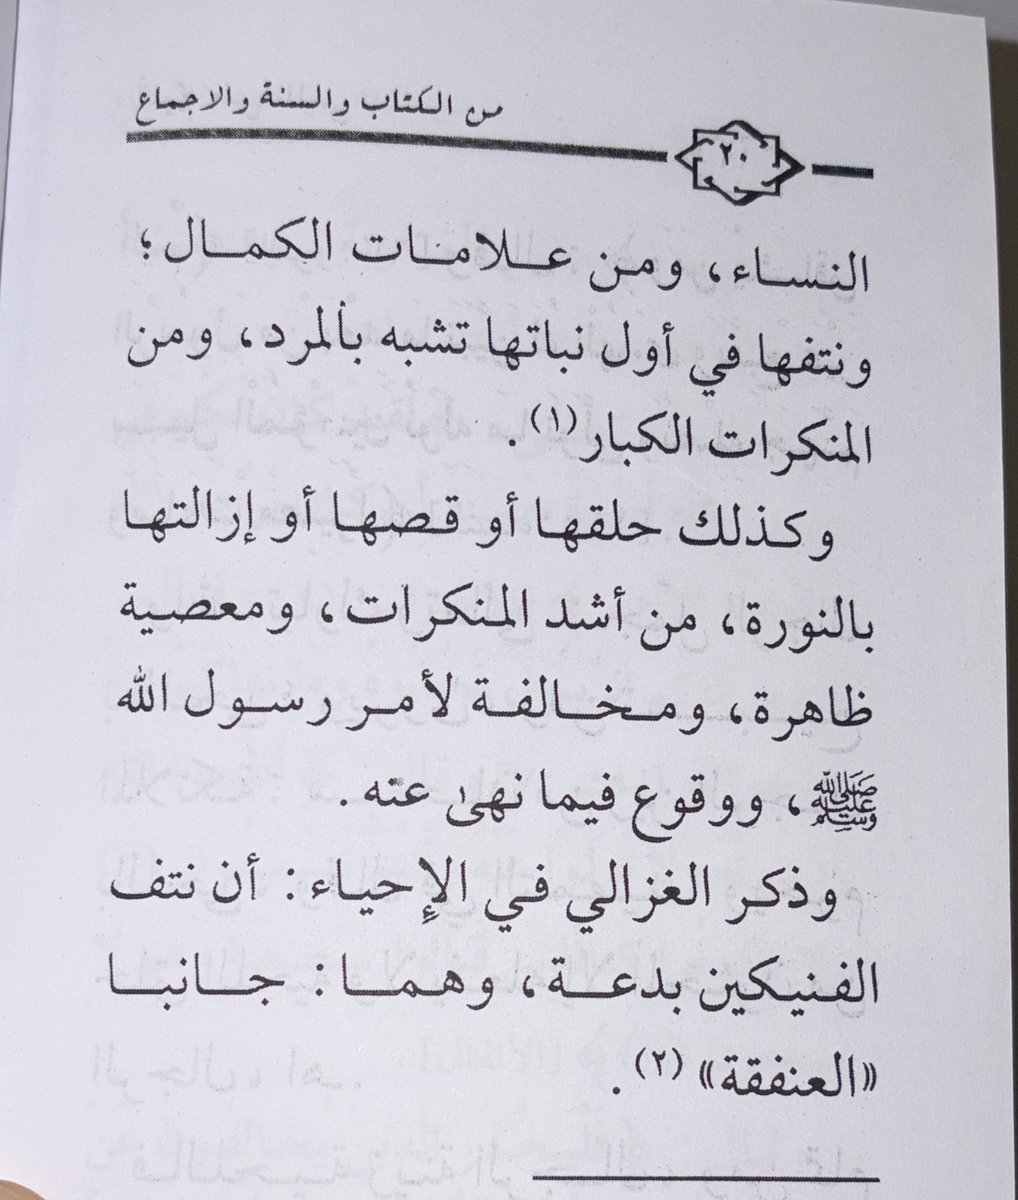 من الكتاب والسنة والاجماع
٢٠
النساء، ومن علامات الكمال؛
ونتفها في أول نباتها تشبه بالمرد، ومن
المنكرات الكبار(١).
وكذلك حلقها أو قصها أو إزالتها
بالنورة، من أشد المنكرات، ومعصية
ظاهرة، ومخالفة لأمر رسول الله
ﷺ، ووقوع فيما نهى عنه.
وذكر الغزالي في الإحياء: أن نتف
الفنيكين بدعة، وهما: جانبا
«العنفقة» (٢).